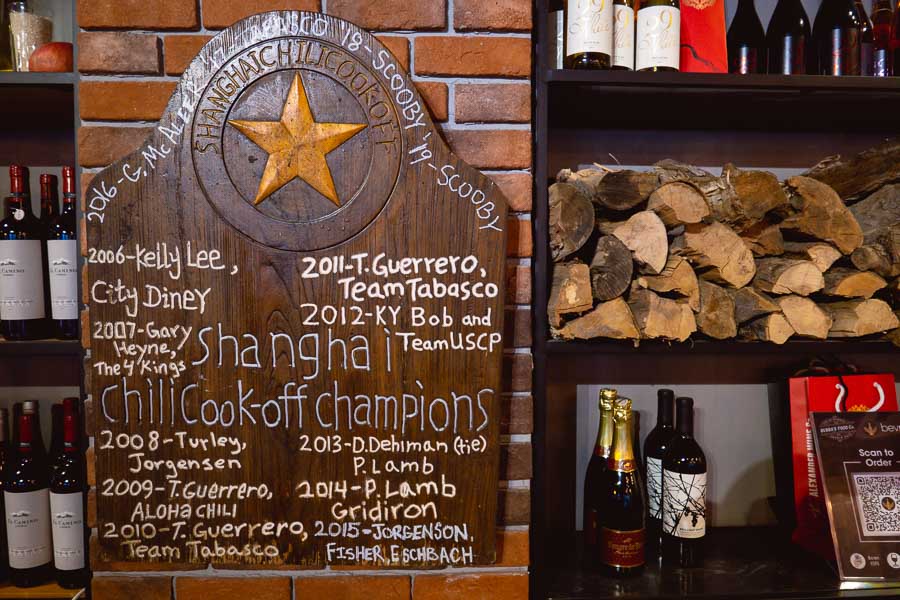 SHANGHAI CHILI COOKOFF
2016-G. MCALEER
'18-SCOOBY '19-SCOOBY
2006-Kelly Lee,
City Diney
2007-Gary
Heyne,
The 4 Kings
2011-T. Guerrero,
Team Tabasco
2012-KY Bob and
Team USCP
Shanghai
Chili Cook-off champions
2008-Turley,
Jorgensen
2009-T. Guerrero,
ALOHA CHILI
2010-T. Guerrero,
Team Tabasco
2013-D. Dehiman (tie)
P. Lamb
2014-P. Lamb
Gridiron
2015-JORGENSON,
FISHER, ESCHBACH
EL CAMINO
EL CAMINO
99
BUBBA'S FOOD Co.
Scan to
Order